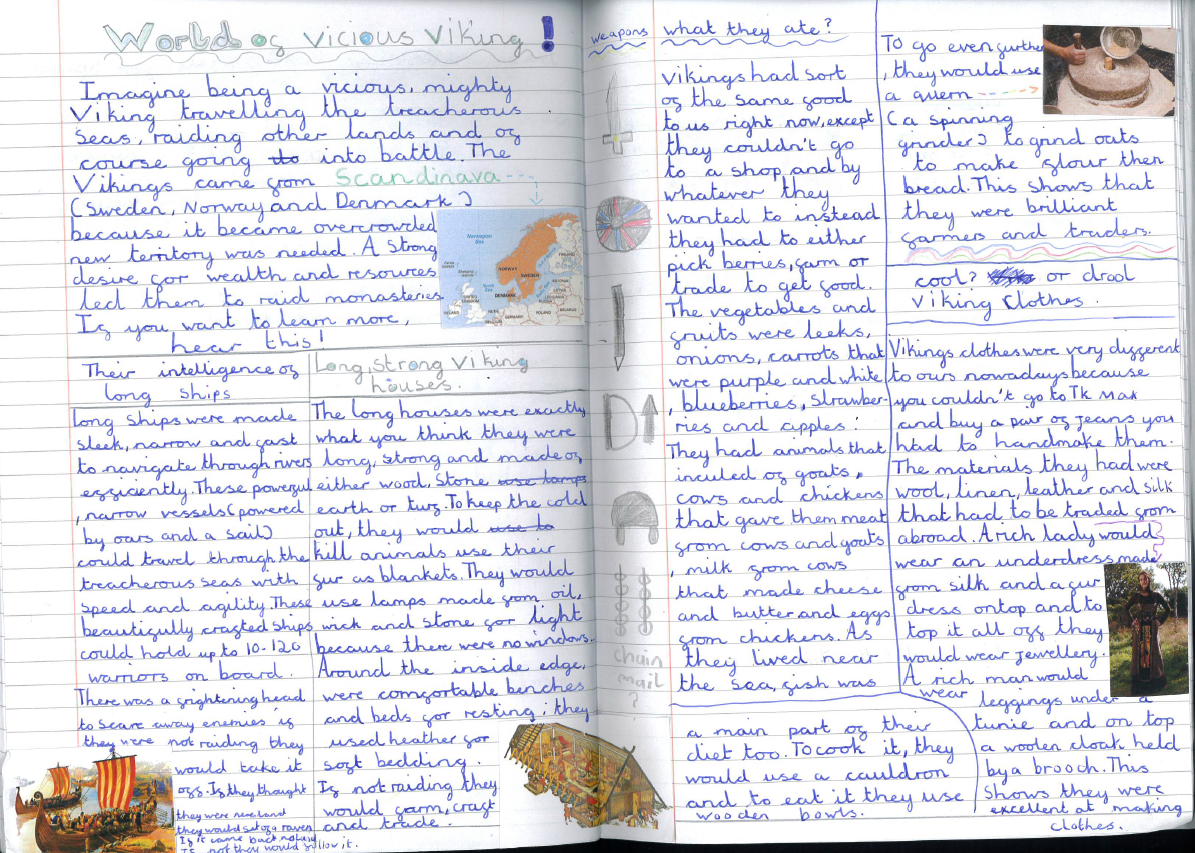 World of vicious Viking!
Imagine being a vicious, mighty
Viking travelling the treacherous
seas, raiding other lands and of
course going to into battle. The
Vikings came from Scandinava
(Sweden, Norway and Denmark)
because it became overcrowded
new territory was needed. A strong
desire for wealth and resources
led them to raid monasteries.
If you want to learn more,
hear this!
Norwegian
Sea
NORWAY
SWEDEN
FINLAND
DENMARK
GERMANY
POLAND
BELARUS
Their intelligence of
long ships
long ships were made
sleek, narrow and fast
to navigate through rivers
efficiently. These powerful
, narrow vessels (powered
by oars and a sail)
could travel through the
treacherous seas with
speed and agility. These
beautifully crafted ships
could hold up to 10-120
warriors on board.
There was a frightening head
to scare away enemies if
they were not raiding they
would take it
off. If they thought
they were near land
they would set of a raven
If it came back not land
If not they would follow it.
Long, strong Viking
houses.
The long houses were exactly
what you think they were
long, strong and made of
either wood, stone use lamps
earth or turf. To keep the cold
out, they would use to
kill animals use their
fur as blankets. They would
use lamps made from oil,
wick and stone for light
because there were no windows.
Around the inside edge,
were comfortable benches
and beds for resting; they
used heather for
soft bedding.
If not raiding they
would farm, craft
and trade.
weapons
chain
mail
?
what they ate?
Vikings had sort
of the same food
to us right now, except
they couldn't go
to a shop and by
whatever they
wanted to instead
they had to either
pick berries, farm or
trade to get food.
The vegetables and
fruits were leeks,
onions, carrots that
were purple and white
, blueberries, strawber-
ries and apples!
They had animals that
inculed of goats,
cows and chickens
that gave them meat
from cows and goats
, milk from cows
that made cheese
and butter and eggs
from chickens. As
they lived near
the sea, fish was
a main part of their
diet too. To cook it, they
would use a cauldron
and to eat it they use
wooden bowls.
To go even further
, they would use
a quern
(a spinning
grinder) to grind oats
to make flour then
bread. This shows that
they were brilliant
farmers and traders.
cool? or drool
Viking clothes.
Vikings clothes were very different
to ours nowadays because
you couldn't go to Tk Max
and buy a par of jeans you
had to handmake them.
The materials they had were
wool, linen, leather and silk
that had to be traded from
abroad. A rich lady would
wear an underdress made
from silk and a fur
dress ontop and to
top it all off they
would wear jewellery.
A rich man would
wear leggings under a
tunic and on top
a woolen cloak held
by a brooch. This
shows they were
excellent at making
clothes.